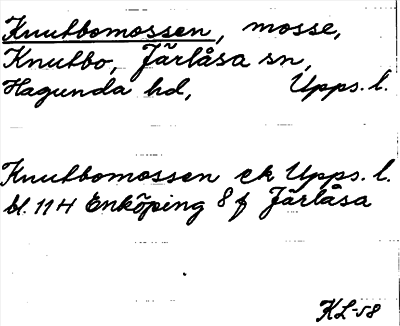 Knutbomossen, mosse,
Knutbo, Järlåsa sn,
Hagunda hd, Upps. l.
Knutbomossen ek Upps. l.
bl. 11H Enköping 8 f Järlåsa
KL-58